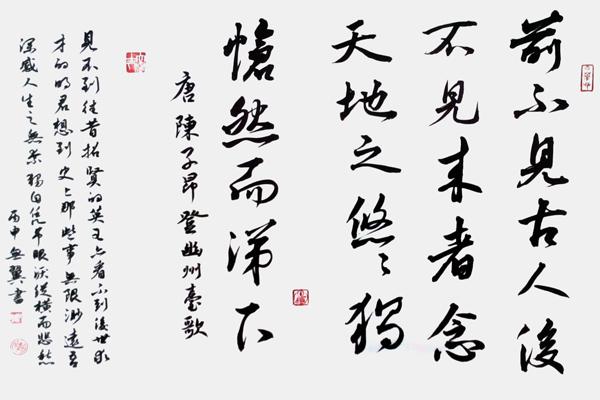 前不見古人後
不見来者念
天地之悠々獨
愴然而涕下
唐陳子昂登幽州臺歌
見不到往昔招賢的英王亦看不到後世求
才的明君想到史上那些事無限渺遠吾
深感人生之無奈獨自凭吊眼淚縱橫而悲愁
丙申無翼書